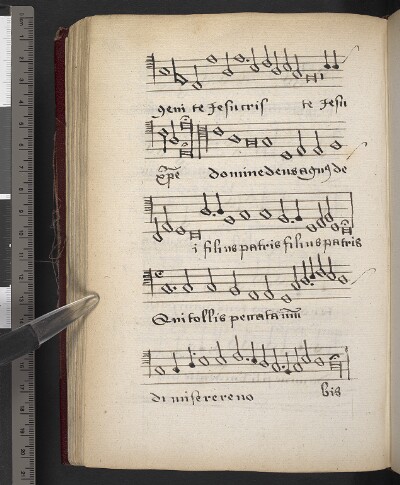 geni te Jesu cris te Jesu
xpe domine deus agn9 de
i filius patris filius patris
Qui tollis peccata mu
di miserere no bis